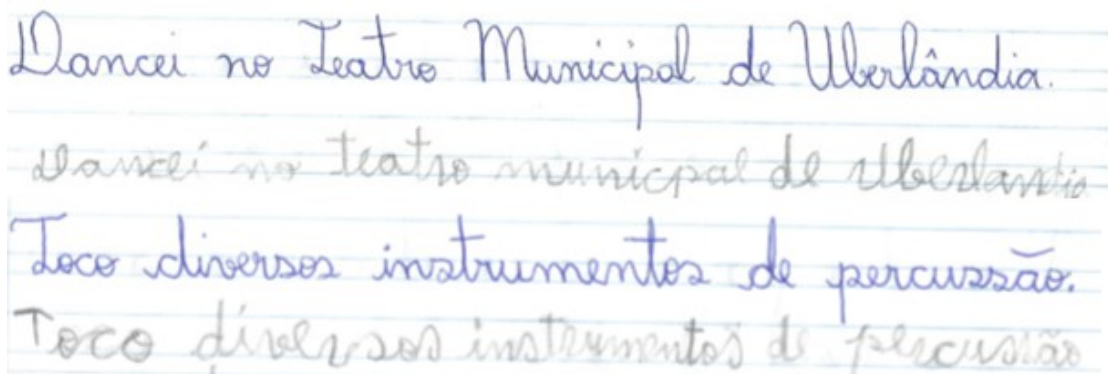 Dancei no Teatro Municipal de Uberlândia.
Dancei no teatro municpal de Uberlandia
Toco diversos instrumentos de percussão.
Toco diversos instrumentos de percussão